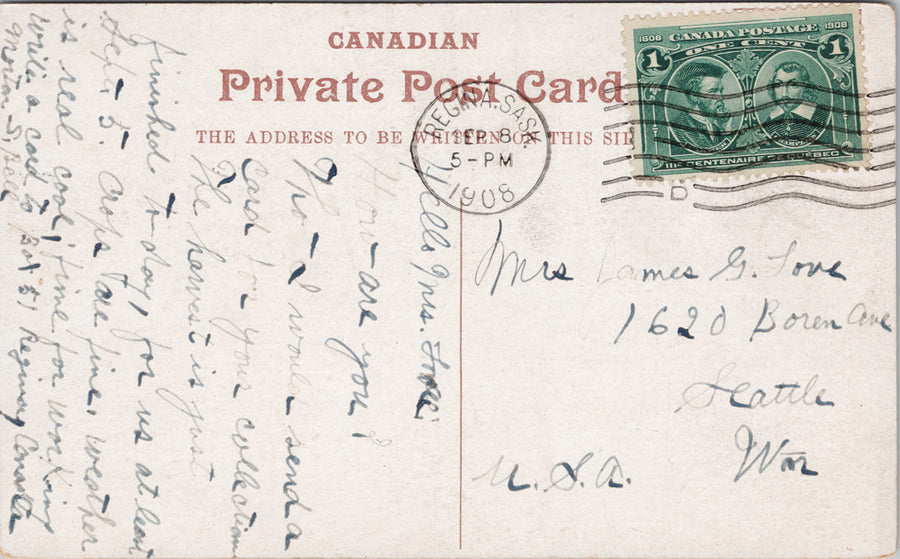 CANADIAN
Private Post Card
THE ADDRESS TO BE WRITTEN ON THIS SI
REGINA. SASK.
SEP 8
5-PM
1908
1608 CANADA POSTAGE 1908
ONE CENT
1 1
IIIE CENTENAIRE DE QUEBEC
D
Hello Mrs. Love;
How are you?
Tho-I would send a
card for your collection
The harvest is just
finished to-day, for us at least
Sept-5. Crops are fine, weather
is real cool, fine for working
Write a card to Box 51 Regina, Canada
Mrs James G. Love
1620 Boren Ave
Seattle
Wn
U.S.A.